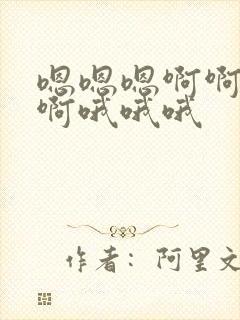 嗯嗯嗯啊啊
啊哦哦哦
作者：阿里文